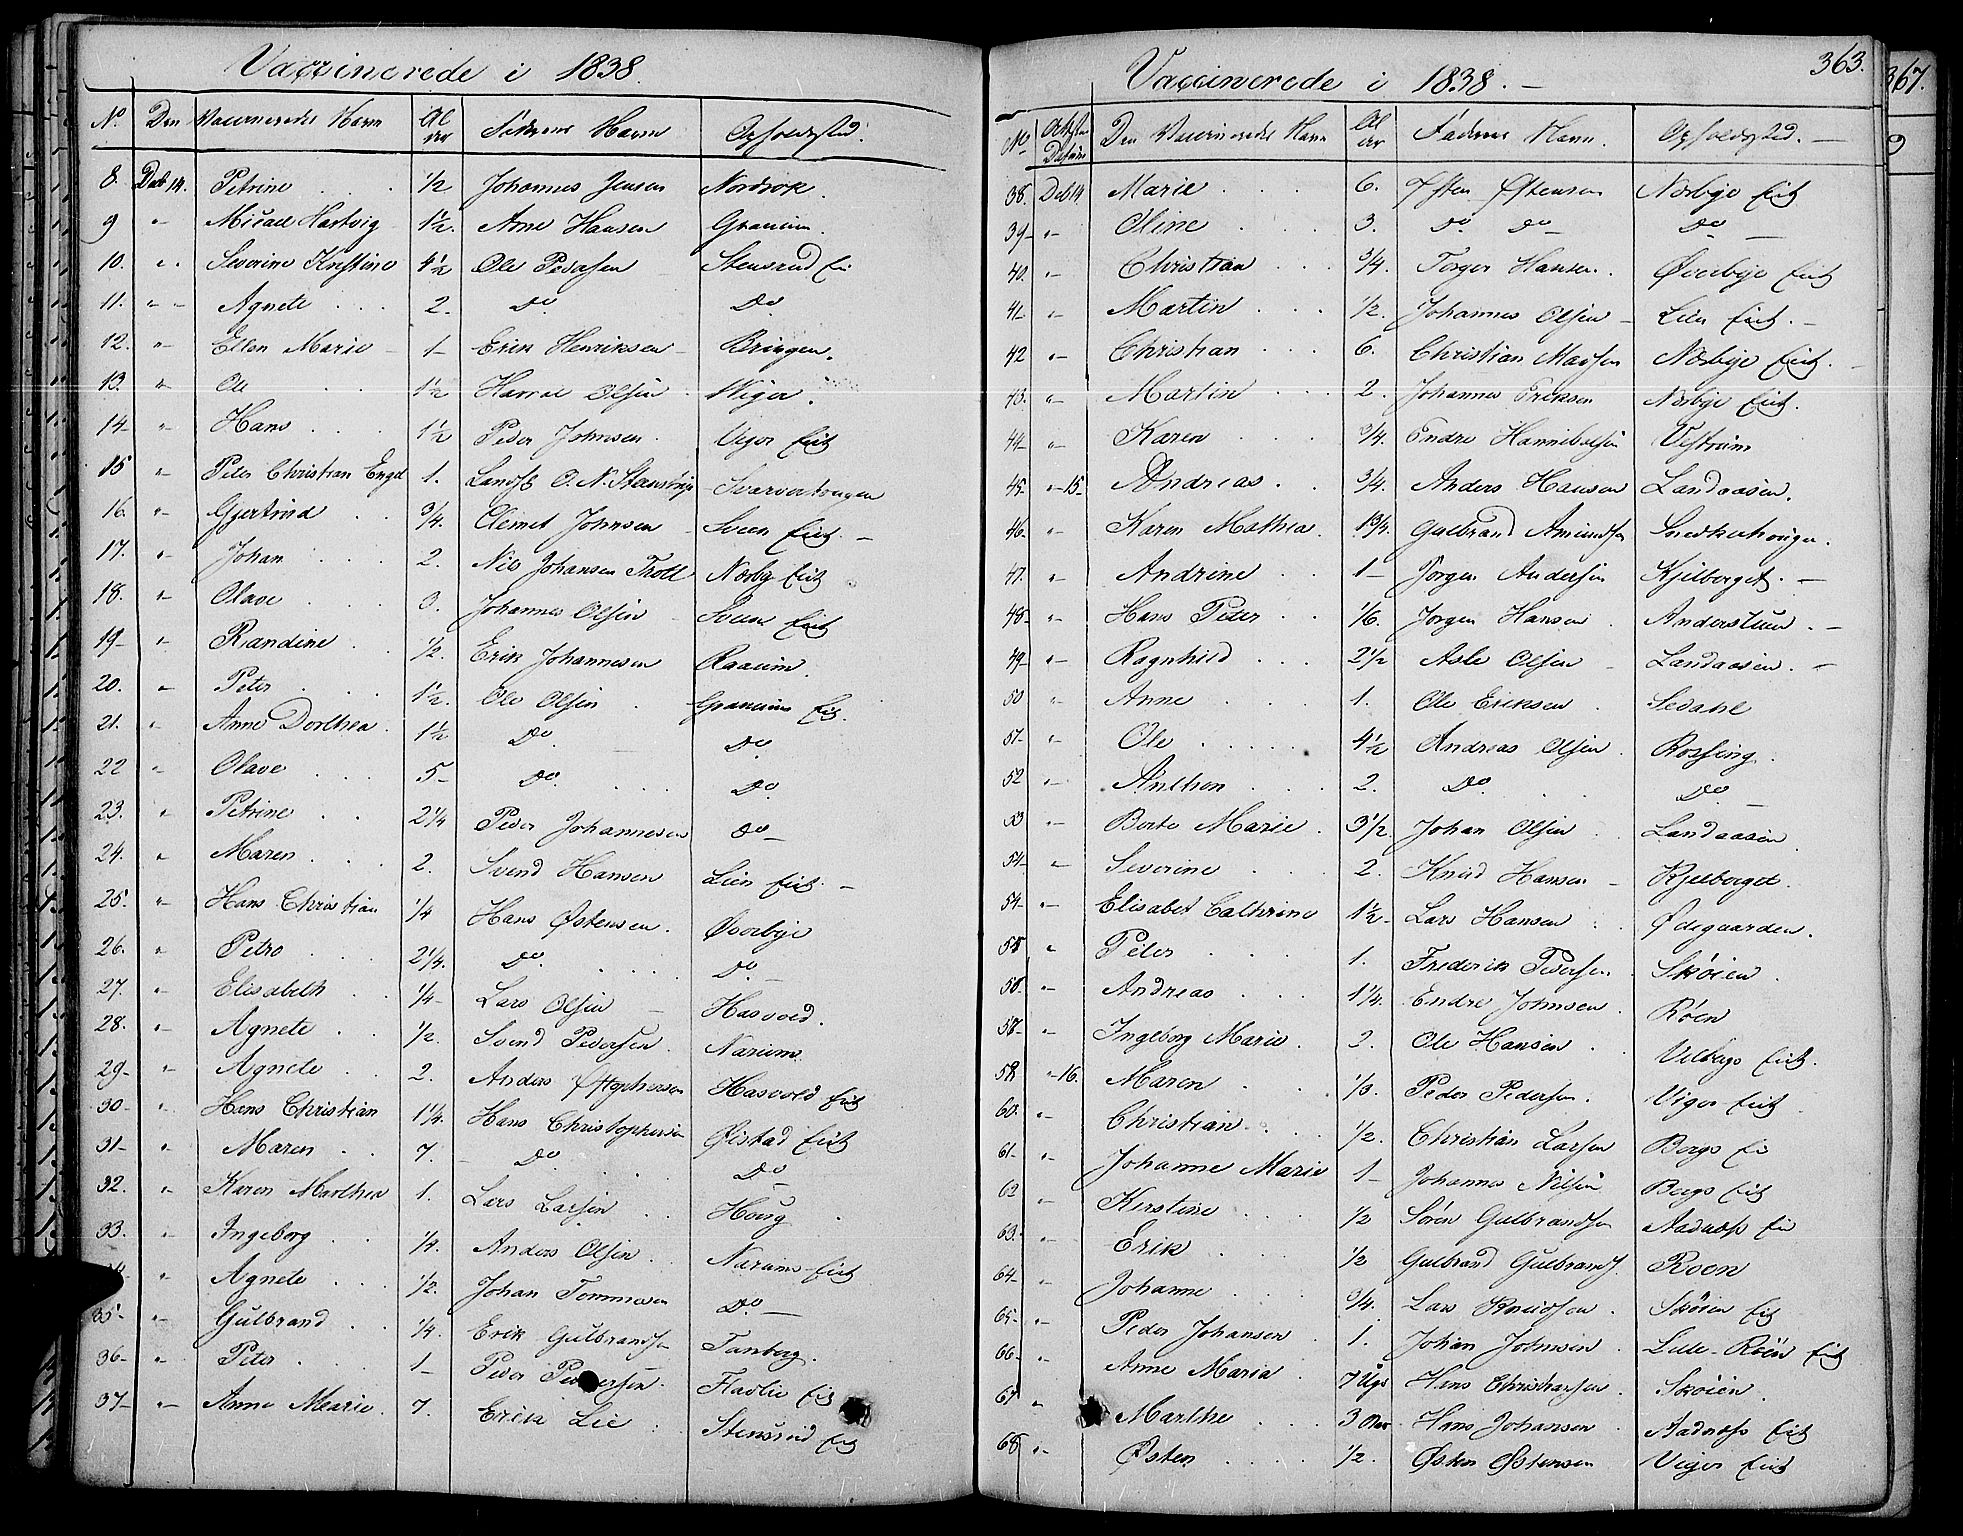 Vaccinerede i 1838.
No Den Vaccineredes Navn Al der Faderens Navn Opholdsted.
8. Deb 14. Petrine 1/2 Johannes Jensen Nordrok.
9 " Micael Hartvig 1 1/2. Arne Hansen Granum.
10. " Severine Kristine 4 1/2 Ole Pedersen Stensrud
11. " Agnete 2. Do Do.
12. " Ellen Marie 1 Erik Henriksen Bringen.
13. " Ole 1 1/2 Olsen Niger.
14 " Hans 1 1/2 Peder Johnsen Viger Eit
15 " Peter Christian Engel 1. O. N.
16. " Gjertrud 3/4. Clemet Johnsen Sveen Eit.
17. " Johan 2. Nils Johansen Troll Norby Eit
18. " Olave 3. Johannes Olsen Sveen Eit
19 " Randine 1/2. Erik Johannesen Raaum.
20. " Peter 1 1/2. Ole Olsen Granum Eit.
21. " Anne Dorthea. 1 1/2 Do Do
22 " Olave 5 Do. Do.
23. " Petrine 2 1/4 Peder Johannesen Do
24. " Maren 2. Svend Hansen Lien Eit.
25. " Hans Christian 1/4 Hans Østensen. Øverbye
26. " Petro 2 1/4. Do. Do.
27. " Elisabeth 1/4 Lars Olsen Hasvold.
28. " Agnete 1/2. Svend Pedersen. Narum.
29 " Agnete 2. Anders Hasvold Eit
30 " Hans Christian 1 1/4. Hans Christophersen Ølstad Eit
31 " Maren 7. Do. Do
32. " Karen Marthea 1. Lars Larsen Houg
33. " Ingeborg 1/4. Anders Olsen Narum Eit
" Agnete 1/2. Johan Tommesen Do.
35 " Gulbrand 1/4. Erik Gulbrandsen Fanberg.
36 " Peter 1 Peder Pedersen. Fladlie Eit
37 " Anne Marie. 7. Erik Lie Stensrud Eit
363.
367.
Vaccinerede i 1838.
No Den Vaccineredes Navn Al der Faderens Navn. Opholdsted.
38. Deb 14 Marie 6. Østen Østensen Norbye Eit
39 " Oline 3. Do Do Do
40. " Christian 3/4. Torger Hansen. Øverbye Eit
41 " Martin 1/2. Johannes Olsen Lien Eit.
42 " Christian 6. Christian Madsen Norbye Eit.
43. " Martin 2. Johannes Eriksen Norbye Eit.
44 " Karen 3/4. Endre Hannibalsen Vestrum
45 " 15 Andreas. 3/4. Anders Hansen Landaasen.
46. " Karen Mathea. 1 3/4. Gulbrand Amundsen Snedkerhougen.
47. " Andrine 1 Jørgen Andersen Kjelberget.
48 " Hans Peter 1/6. Jørgen Hansen Anderstuen.
49 " Ragnhild 2 1/2 Asle Olsen Landaasen.
50 " Anne 1. Ole Eriksen Sedahl
51 " Ole 4 1/2 Andreas Olsen. Rossing.
52 " Anthon 2. Do Do.
53 " Berte Marie. 3 1/2. Johan Olsen Landaasen
54 " Severine 2. Knud Hansen Kjelberget.
54 " Elisabet Cathrine 1 1/2 Lars Hansen Ødegaarden.
" Peter 1. Frederik Pedersen. Skøien.
" Andreas 1 1/4. Endre Johnsen. Røen
" Ingeborg Marie. 2. Ole Hansen Eit.
" 16. Maren 1/3. Peder Pedersen. Viger Eit.
60. " Christian 1/2. Christian Larsen Bergs
61 " Johanne Marie 1 Johannes Nilsen Bergs Eit
62 " Kerstine 1/2 Søren Gulbrandsen Aadnæss
63. " Erik 1/2 Gulbrand Gulbrands. Roen
64 " Johanne 3/4. Lars Knudsen. Skøien Eit
65 " Peder Johansen 1. Johan Johnsen Lille-Røen Eit
66 " Anne Maria 7 Ugr Hans Christiansen. Skøien.
67 " Marthe 3 Hans Johansen Aadnæss Eit
68 " Østen 1/2. Østen Østensen Viger Eit